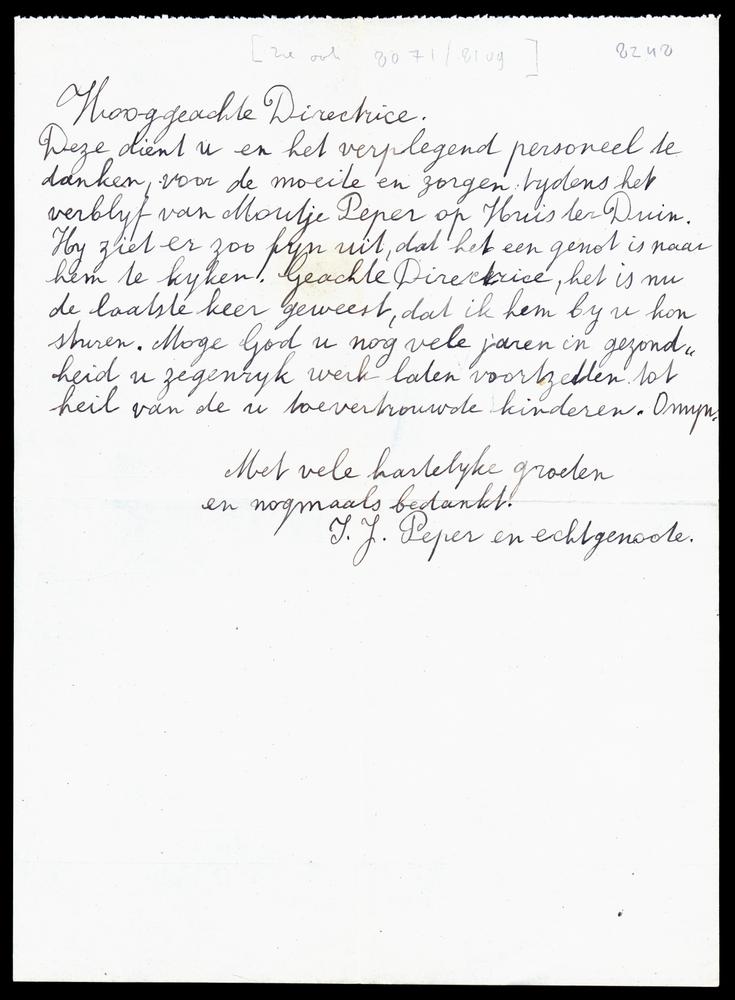 [zie ook 8071/8109] 8248
Hooggeachte Directrice.
Deze dient u en het verplegend personeel te
danken, voor de moeite en zorgen tydens het
verblyf van Moutje Peper op Huis ter Duin.
Hy ziet er zoo fyn uit, dat het een genot is naar
hem te kyken. Geachte Directrice, het is nu
de laatste keer geweest, dat ik hem by u kon
sturen. Moge God u nog vele jaren in gezond„
heid u zegenryk werk laten voortzetten tot
heil van de u toevertrouwde kinderen.
Met vele hartelyke groeten
en nogmaals bedankt.
I. J. Peper en echtgenoote.